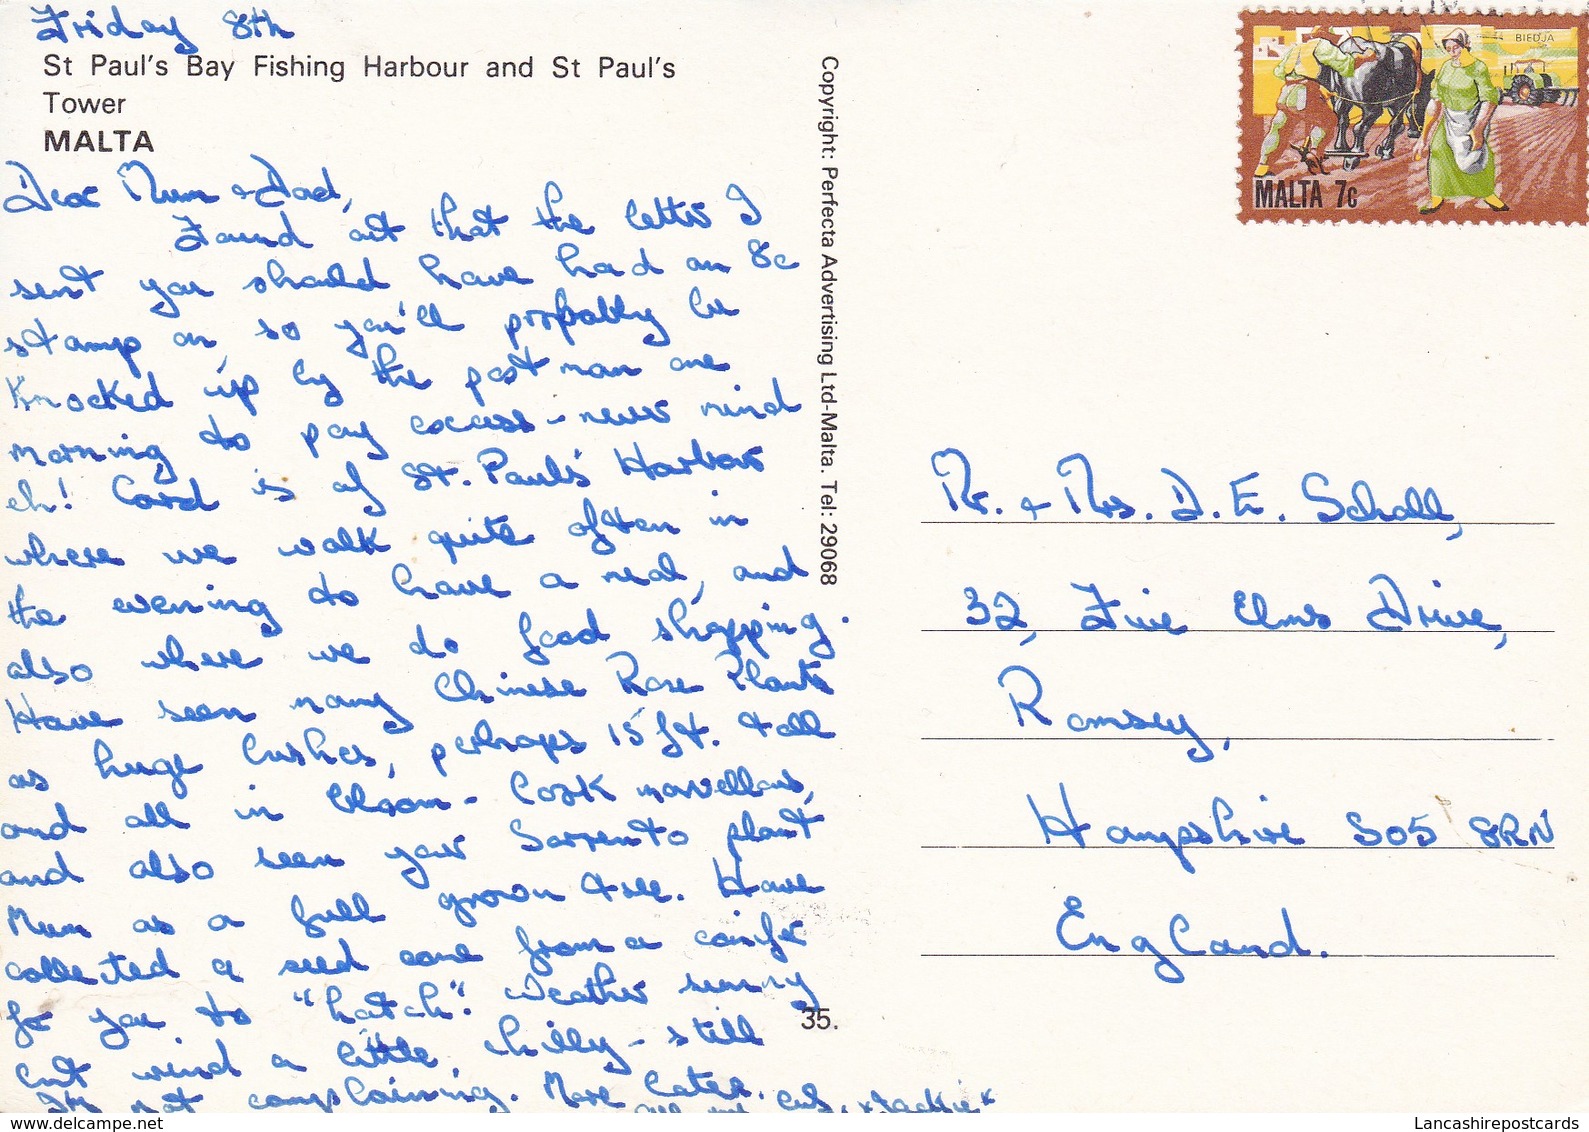 Friday 8th
St Paul's Bay Fishing Harbour and St Paul's
Tower
MALTA
Dear Mum & Dad,
Found out that the letter I
sent you should have had an 8c
stamp on, so you'll probably be
knocked up by the postman one
morning to pay excess - never mind
eh! Card is of St. Paul's Harbour
where we walk quite often in
the evening to have a meal, and
also where we do food shopping.
Have seen many Chinese Rose Plants
as huge bushes, perhaps 15 ft. tall
and all in bloom - look marvellous,
and also seen your Sorrento plant
Mum as a full grown tree. Have
collected a seed cone from a conifer
for you to "hatch". Weather sunny
but wind a little chilly - still
I'm not complaining. More later.
"Jackie"
Copyright: Perfecta Advertising Ltd-Malta. Tel: 29068
35.
BIEDJA
MALTA 7c
Mr. & Mrs. D. E. Scholl,
32, Five Elms Drive,
Romsey,
Hampshire SO5 8RN
England.
Lancashirepostcards